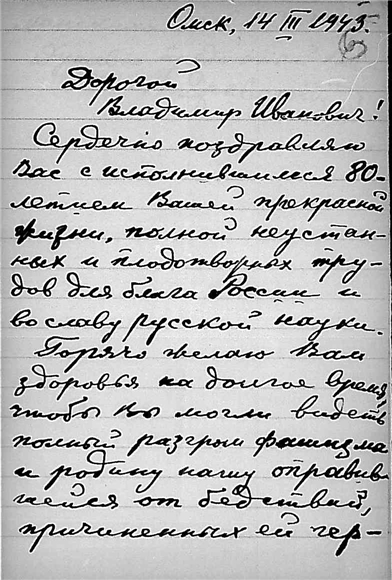 Омск, 14 III 1943.
63
Дорогой
Владимир Иванович!
Сердечно поздравляю
Вас с исполнившимся 80-
летием Вашей прекрасной
жизни, полной неустан-
ных и плодотворных тру-
дов для блага России и
во славу русской науки.
Горячо желаю Вам
здоровья на долгое время,
чтобы Вы могли видеть
полный разгром фашизма
и родину нашу оправив-
шейся от бедствий,
причиненных ей гер-